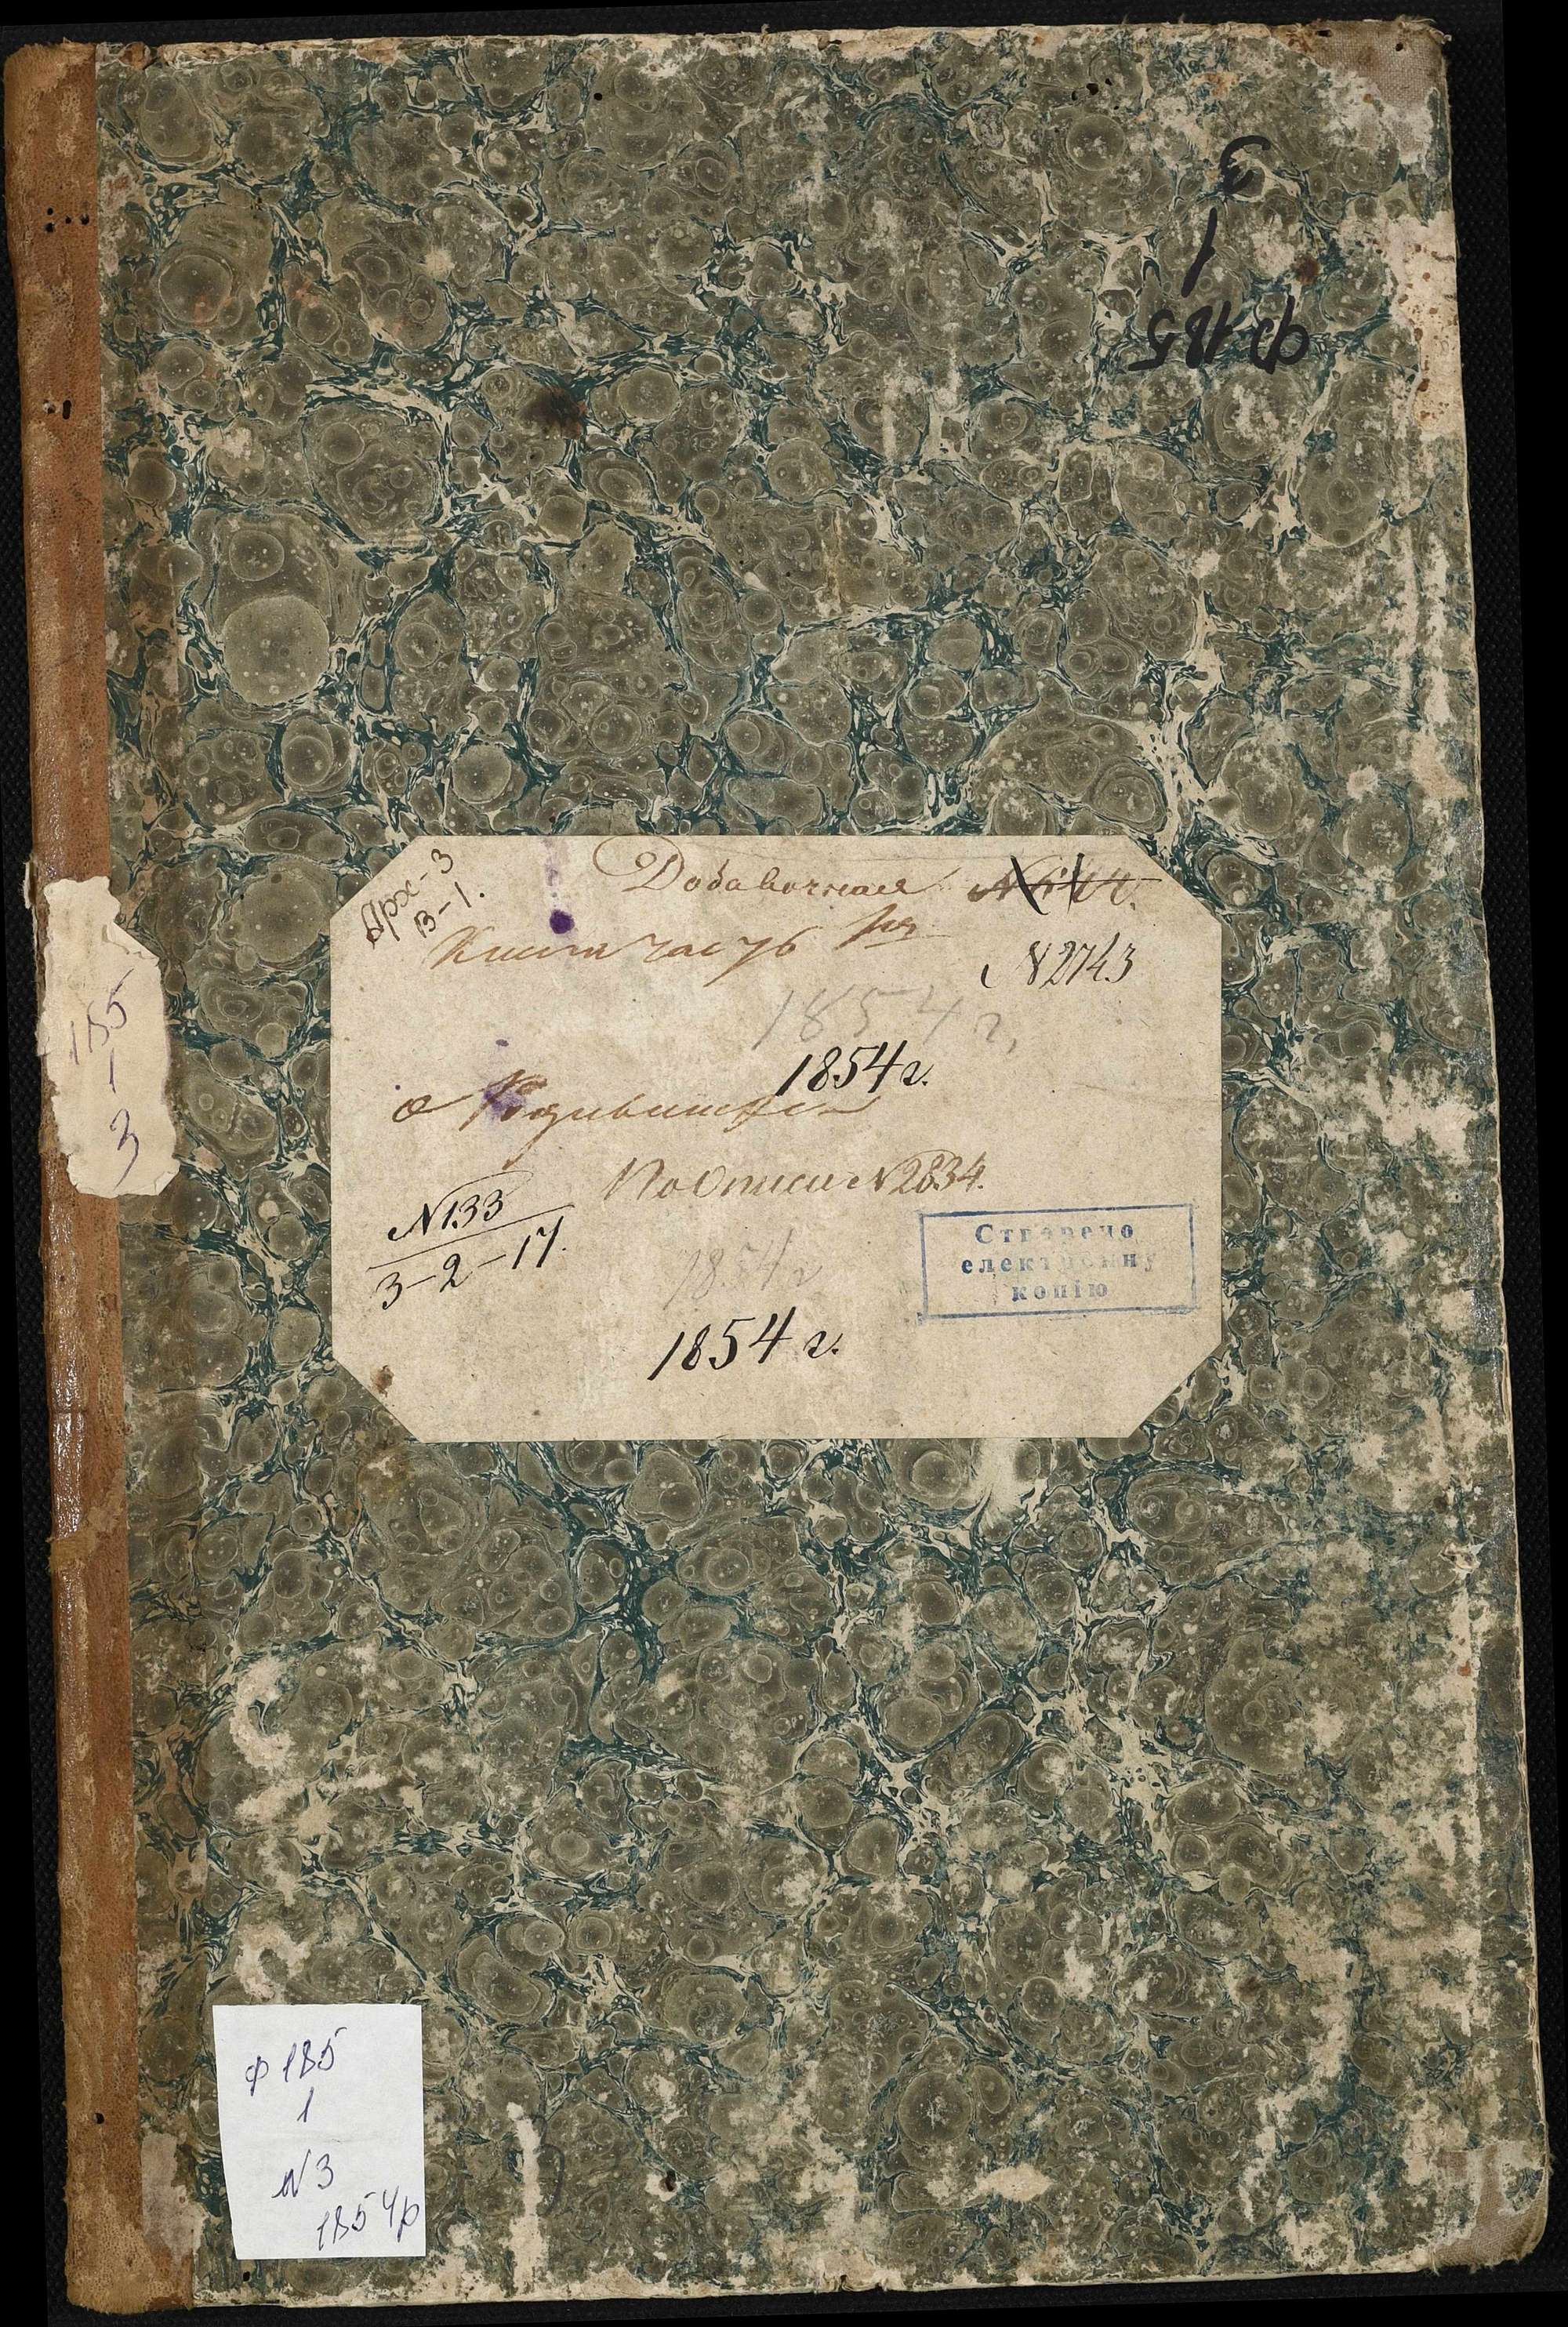 3
1
ф 185
Арх-3
В-1.
Добавочная
Книга часть 1я
N2743
1854 г.
1854 г.
о Родившихся
По Описи N2834.
N133
3-2-17.
1854 г
1854 г.
Створено
електронну
копію
185
1
3
ф 185
1
N 3
1854р